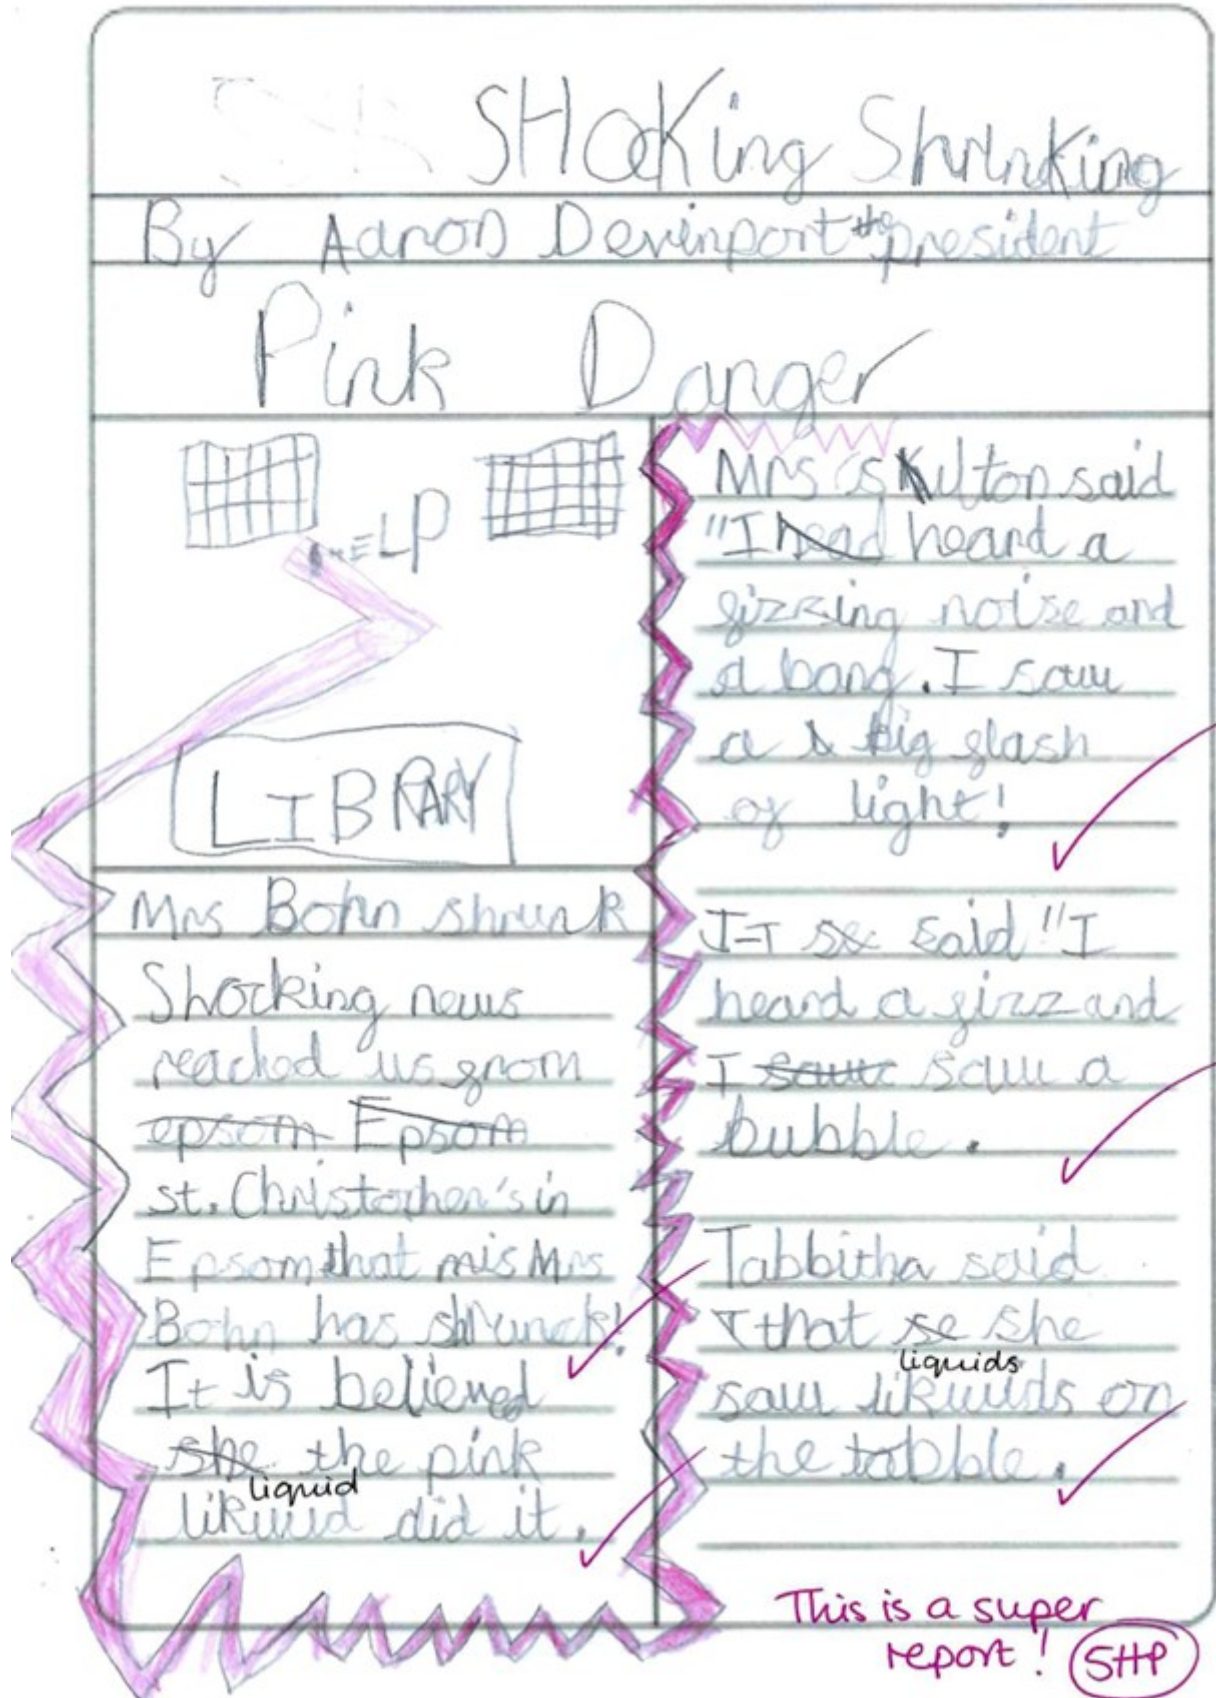 SHocKing ShrinKing
By Aaron Devinport the president
Pink Danger
HELP
LIBRARY
Mrs Bohn shrunk
Shocking news
reached us from
epsom Epsom
st. Christopher's in
Epsom that mis Mrs
Bohn has shrunck!
It is believed
she the pink
liquid
likwid did it.
Mrs Skilton said
"I head heard a
fizzing noise and
a bang. I saw
a big flash
of light!
I-T said "I
heard a fizz and
I saw saw a
bubble.
Tabbitha said
that se she
liquids
saw likwids on
the tabble.
This is a super
report! 5HP